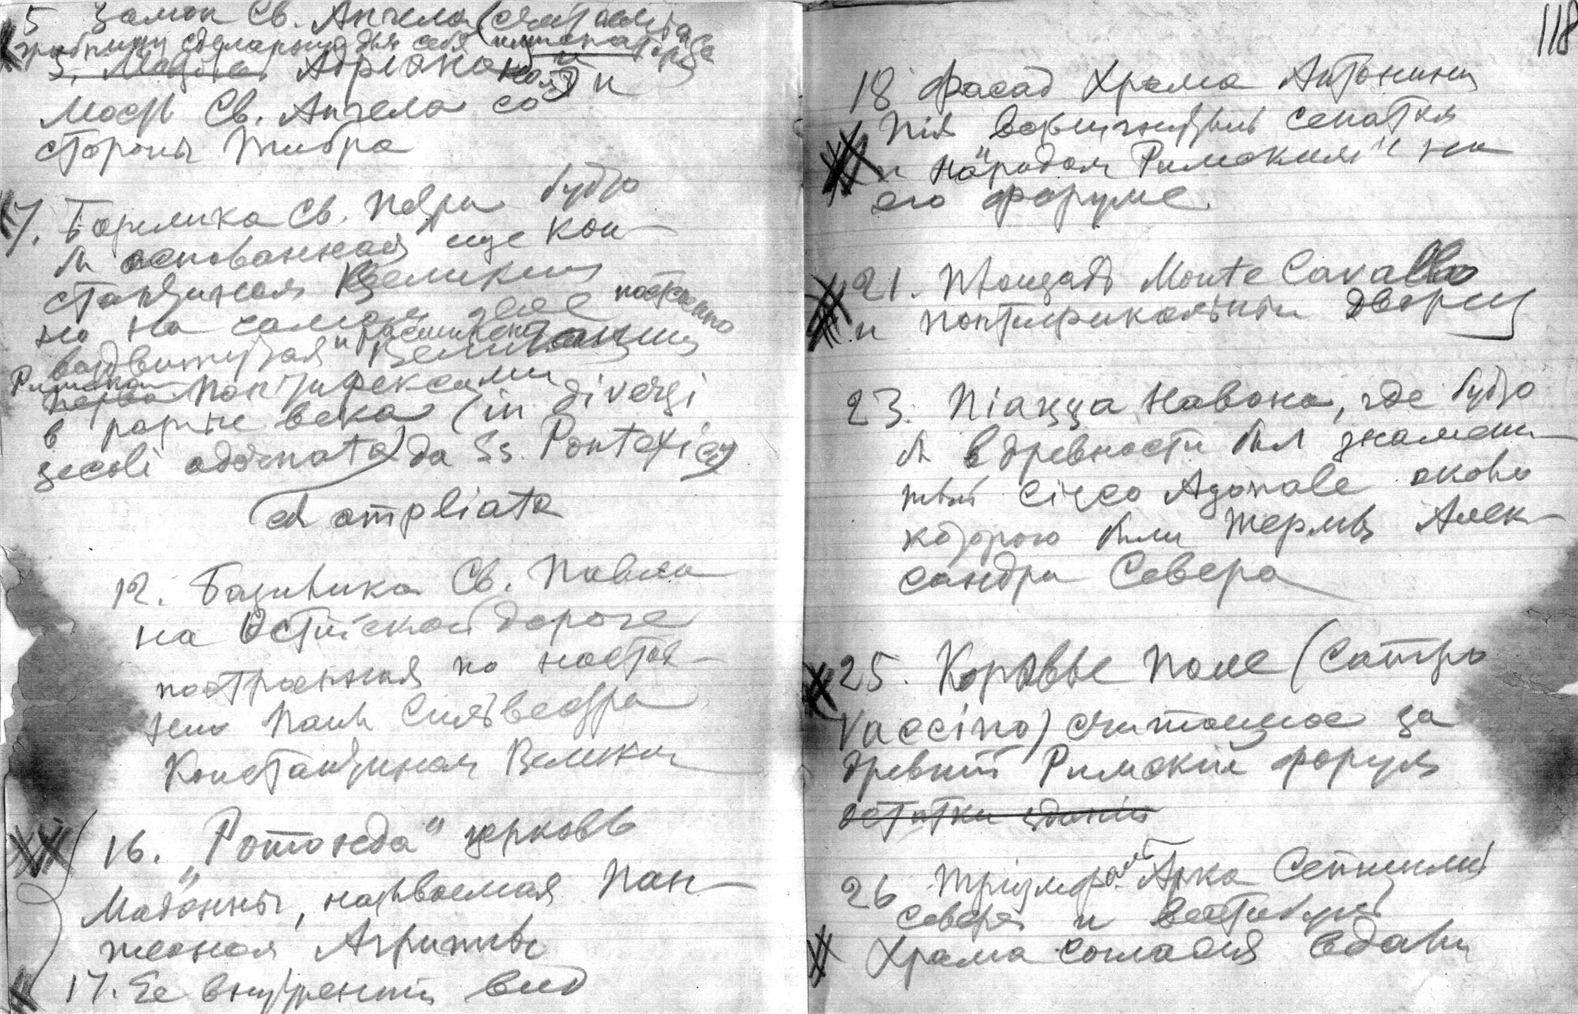 5 Замок Св. Ангела (считаемый за
гробницу сделанную для себя императором
Адрианом) и
Мост Св. Ангела со
стороны Тибра
7. Базилика Св. Петра будто
бы основанная еще Кон-
стантином Великим
но на самом деле постепенно
воздвигнутая и расширенная
Римскими Понтифексами
в разные века (in diversi
secoli adornata da Ss. Pontefici
ed ampliata
12. Базилика Св. Павла
на Остийской дороге
построенная по настоя-
нию Папы Сильвестра
Константином Великим
16. „Ротонда" церковь
Мадонны, называемая Пан-
теоном Агриппы
17. Ее внутренний вид
118
18 Фасад Храма Антонина
Пія воздвигнутый сенатом
и „народом Римским" на
его форуме.
21. Площадь Monte Cavallo
и понтификальный дворец
23. Піацца Навона, где будто
бы в древности был знамени-
тый Circo Agonale около
которого были термы Алек-
сандра Севера
25. Коровье Поле (Campo
Vaccino) считаемое за
древний Римский форум
остатки зданій
26 Тріумфаль Арка Септимія
Севера и
Храма Согласия вдали